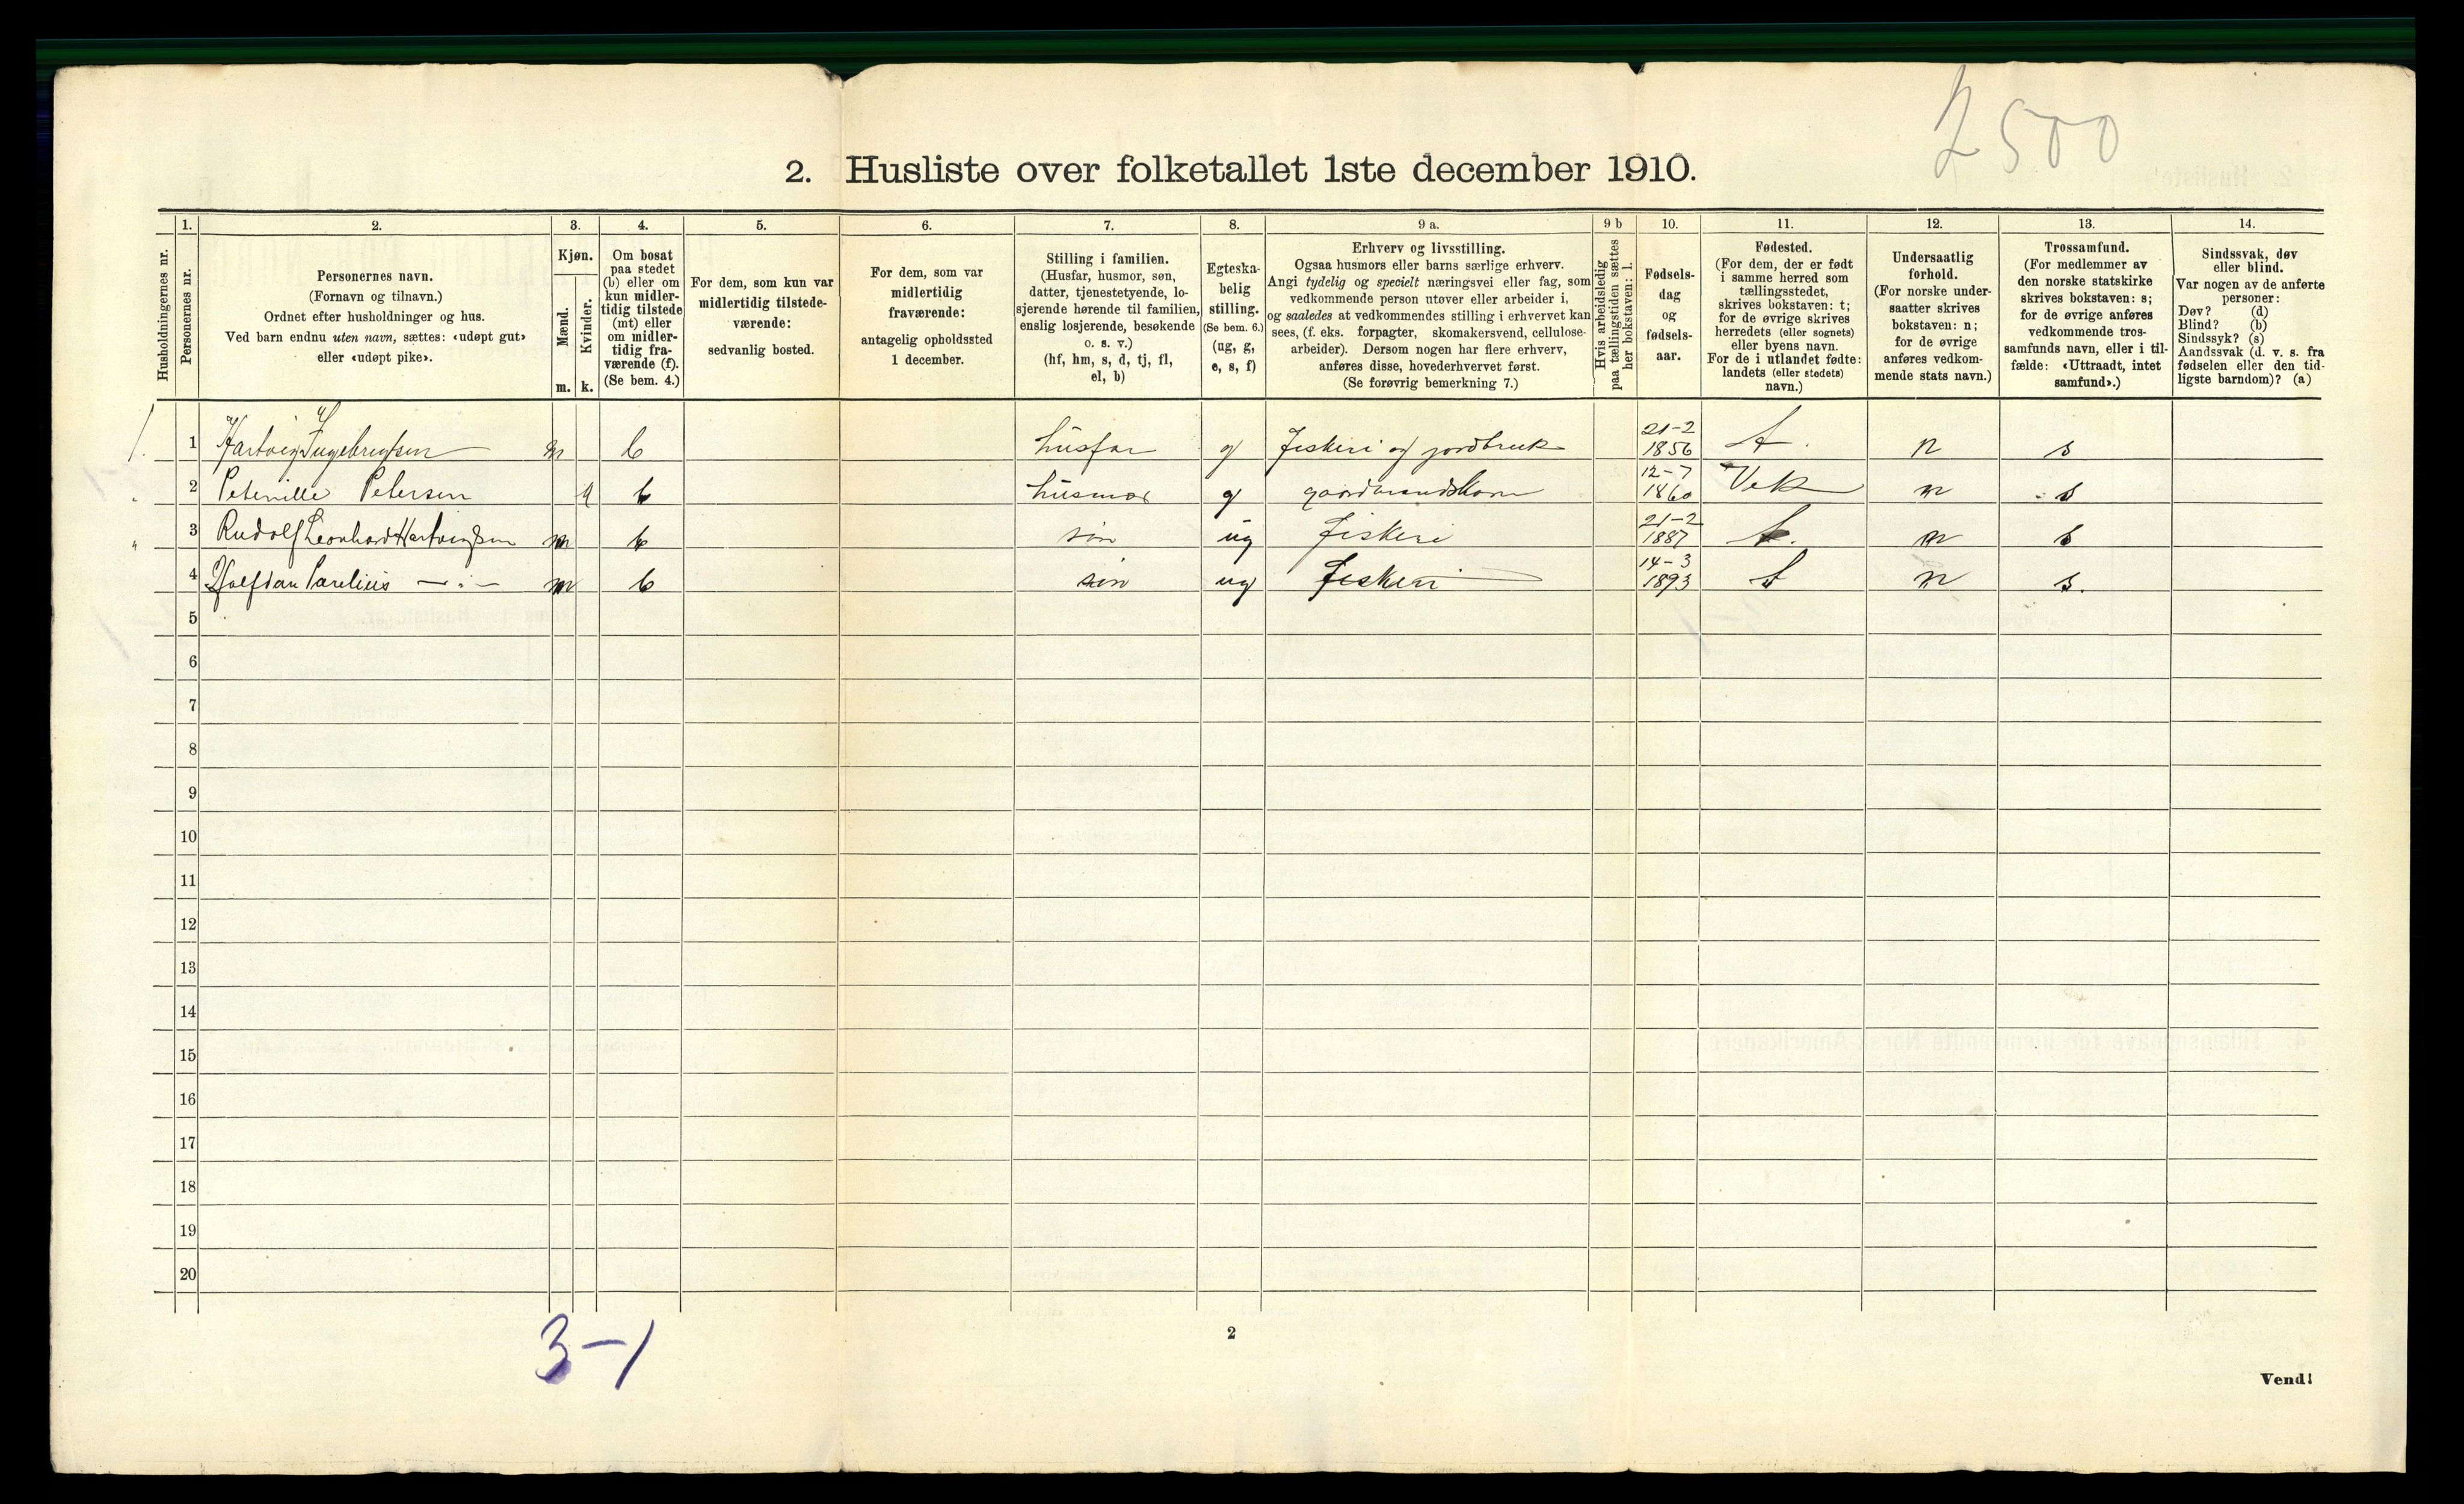 2500
2. Husliste over folketallet 1ste december 1910.
Husholdningernes nr.
1.
Personernes nr.
2.
Personernes navn.
(Fornavn og tilnavn.)
Ordnet efter husholdninger og hus.
Ved barn endnu uten navn, sættes: «udøpt gut»
eller «udøpt pike».
3.
Kjøn.
Mænd.
Kvinder.
m. k.
4.
Om bosat
paa stedet
(b) eller om
kun midler-
tidig tilstede
(mt) eller
om midler-
tidig fra-
værende (f).
(Se bem. 4.)
5.
For dem, som kun var
midlertidig tilstede-
værende:
sedvanlig bosted.
6.
For dem, som var
midlertidig
fraværende:
antagelig opholdssted
1 december.
7.
Stilling i familien.
(Husfar, husmor, søn,
datter, tjenestetyende, lo-
sjerende hørende til familien,
enslig losjerende, besøkende
o. s. v.)
(hf, hm, s, d, tj, fl,
el, b)
8.
Egteska-
belig
stilling.
(Se bem. 6.)
(ug, g,
e, s, f)
9 a.
Erhverv og livsstilling.
Ogsaa husmors eller barns særlige erhverv.
Angi tydelig og specielt næringsvei eller fag, som
vedkommende person utøver eller arbeider i,
og saaledes at vedkommendes stilling i erhvervet kan
sees, (f. eks. forpagter, skomakersvend, cellulose-
arbeider). Dersom nogen har flere erhverv,
anføres disse, hovederhvervet først.
(Se forøvrig bemerkning 7.)
9 b
Hvis arbeidsledig
paa tællingstiden sættes
her bokstaven: l.
10.
Fødsels-
dag
og
fødsels-
aar.
11.
Fødested.
(For dem, der er født
i samme herred som
tællingsstedet,
skrives bokstaven: t;
for de øvrige skrives
herredets (eller sognets)
eller byens navn.
For de i utlandet fødte:
landets (eller stedets)
navn.)
12.
Undersaatlig
forhold.
(For norske under-
saatter skrives
bokstaven: n;
for de øvrige
anføres vedkom-
mende stats navn.)
13.
Trossamfund.
(For medlemmer av
den norske statskirke
skrives bokstaven: s;
for de øvrige anføres
vedkommende tros-
samfunds navn, eller i til-
fælde: «Uttraadt, intet
samfund».)
14.
Sindssvak, døv
eller blind.
Var nogen av de anførte
personer:
Døv? (d)
Blind? (b)
Sindssyk? (s)
Aandssvak (d. v. s. fra
fødselen eller den tid-
ligste barndom)? (a)
1. 1 Hartvig Ingebrigtsen m b husfar g Fiskeri og jordbruk 21-2 1856 t. n s
2 Petersen k b husmor g gaardmandskone 12-7 1860 Vek n s
3 Rudolf Leonhard Hartvigsen m b søn ug Fiskeri 21-2 1887 t. n s
4 Halfdan Parelius —〃— m b søn ug Fiskeri 14-3 1893 t n s.
5
6
7
8
9
10
11
12
13
14
15
16
17
18
19
20
3-1
2
Vend!